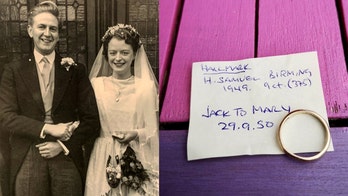 HALLMARK
H. SAMUEL BIRMING
1949. 9ct. (375)
JACK TO MARY
29.9.50